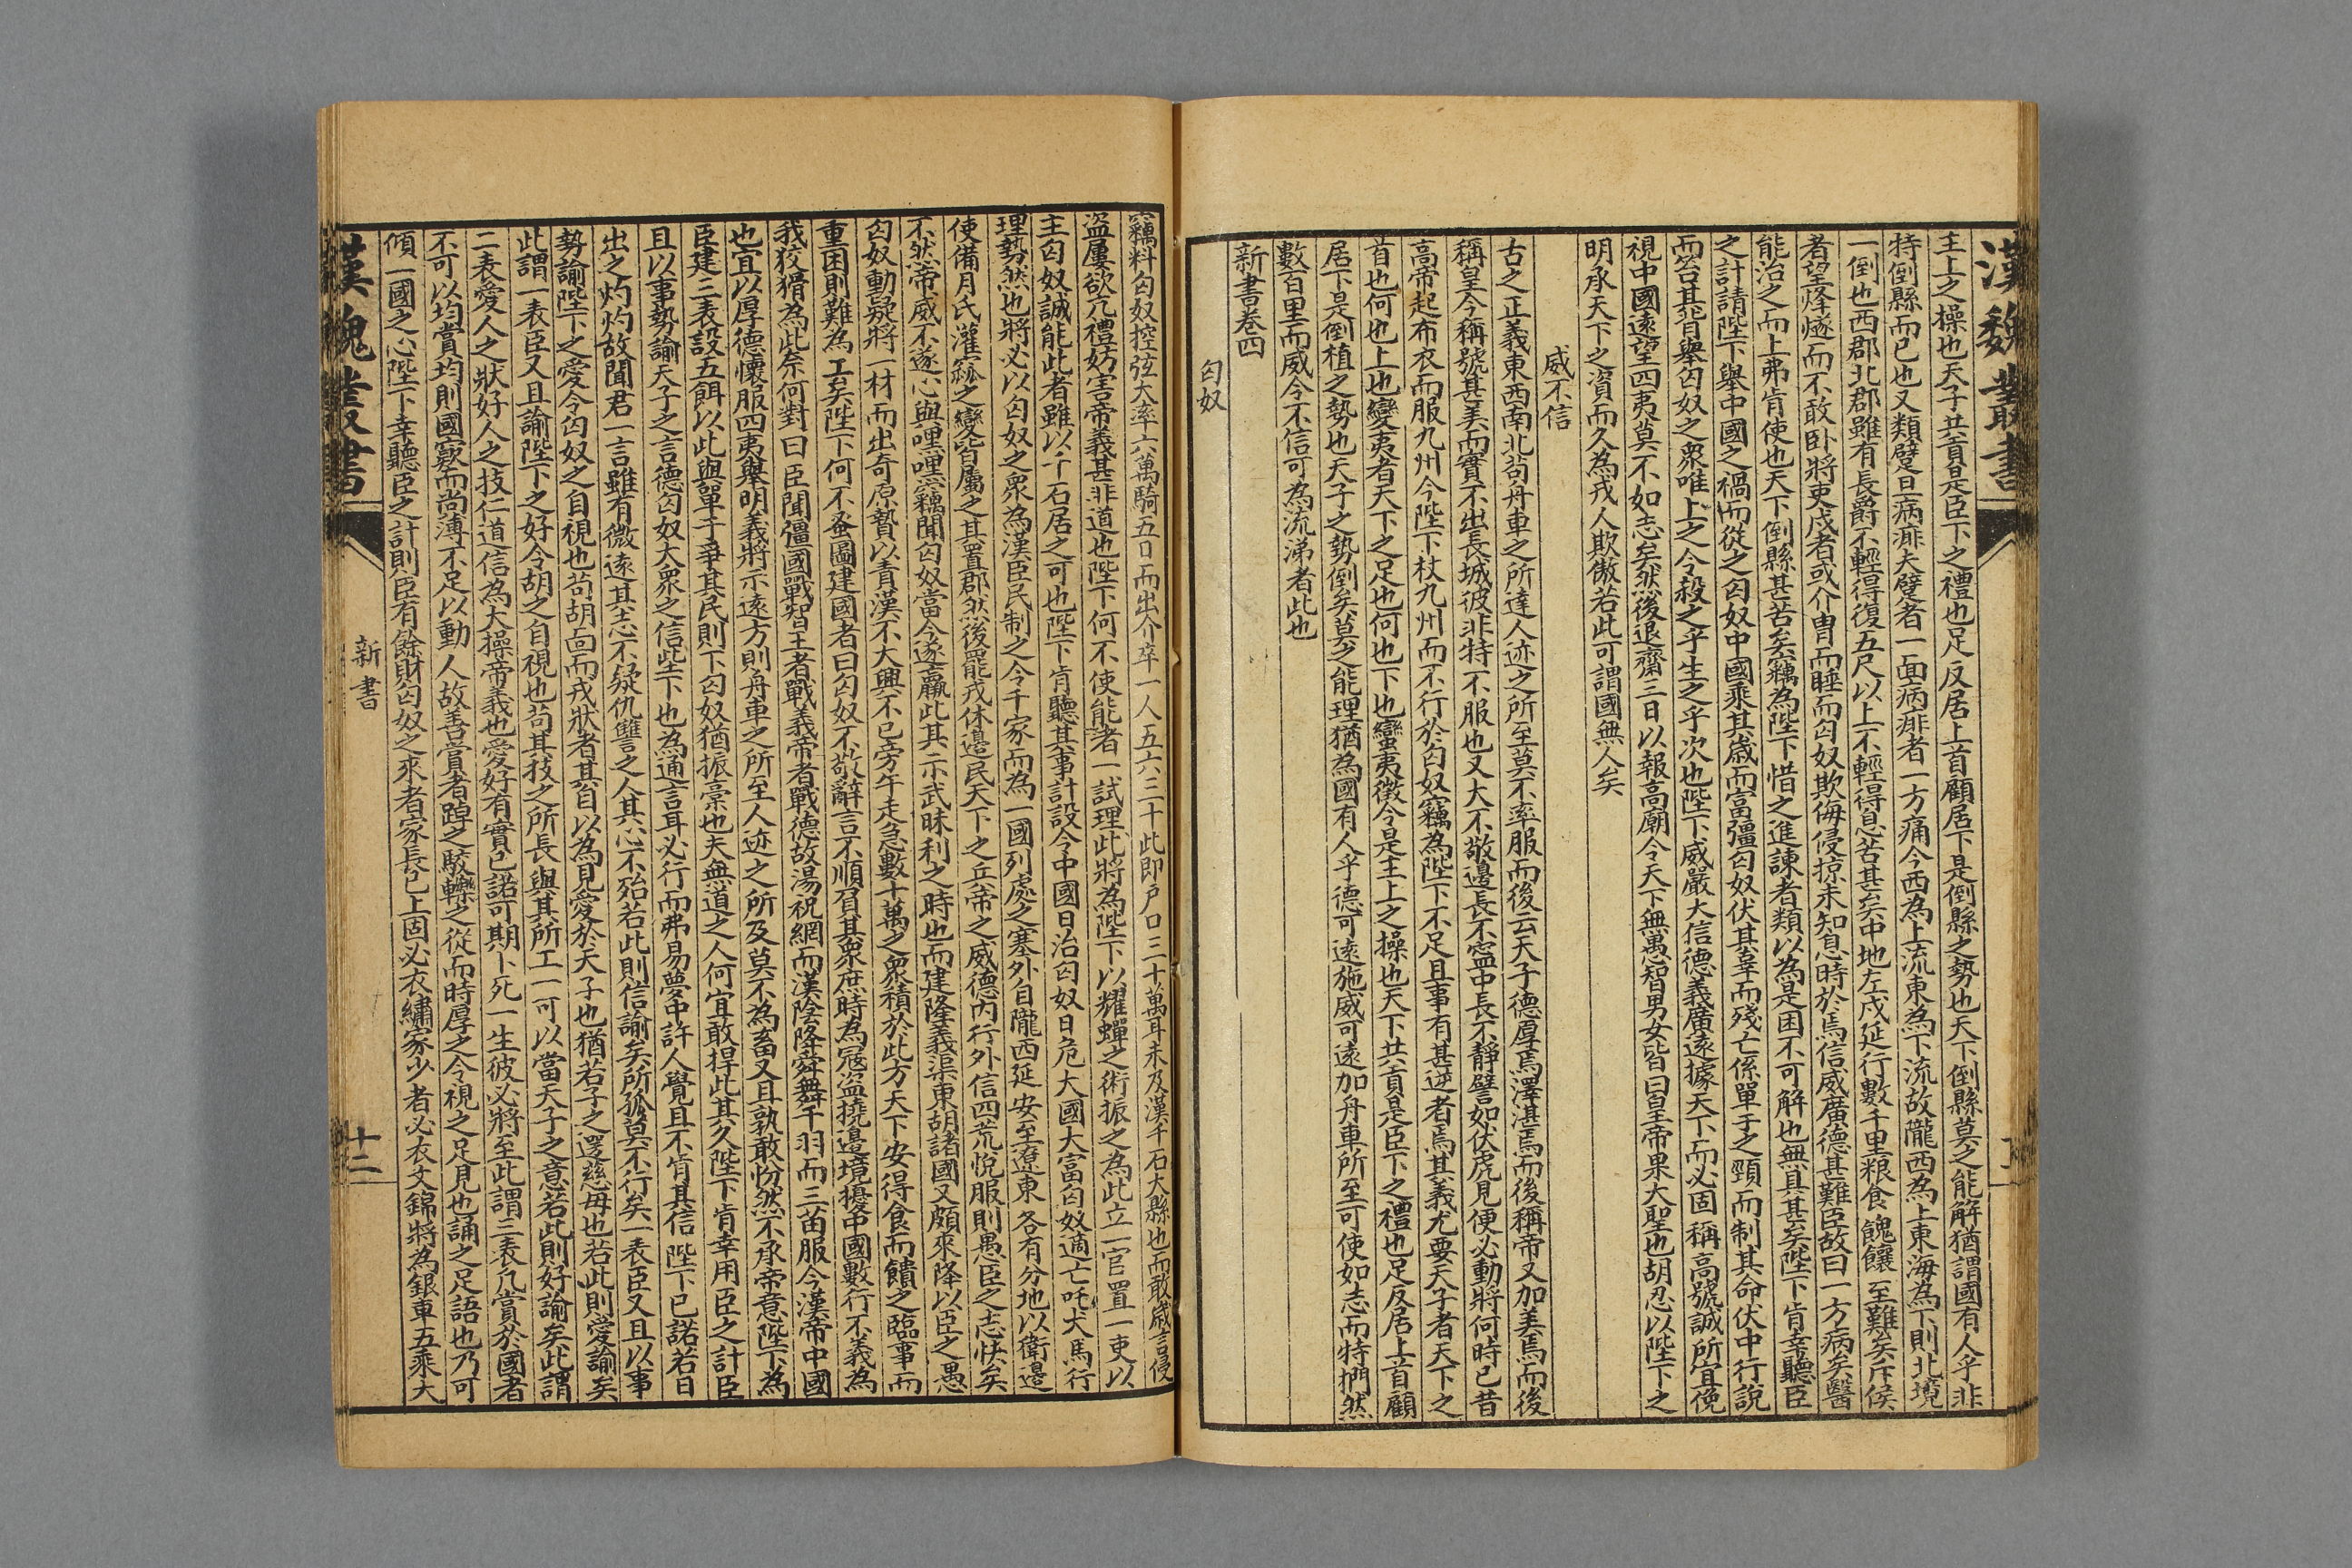 漢魏叢書
主上之操也天子共貢是臣下之禮也足反居上首顧居下是倒縣之勢也天下倒縣莫之能解猶謂國有人乎非
特倒縣而已也又類躄且病痱夫躄者一面病痱者一方痛今西為上流東為下流故隴西為上東海為下則北境
一倒也西郡北郡雖有長爵不輕得復五尺以上不輕得息苦甚矣中地左戍延行數千里粮食餽饟至難矣斥候
者望烽燧而不敢卧將吏戍者或介冑而睡而匈奴欺侮侵掠未知息時於焉信威廣德甚難臣故曰一方病矣醫
能治之而上弗肯使也天下倒縣甚苦矣竊為陛下惜之進諫者類以為是困不可解也無具甚矣陛下肯幸聽臣
之計請陛下舉中國之禍而從之匈奴中國乘其歲而富彊匈奴伏其辜而殘亡係單于之頸而制其命伏中行說
而笞其背舉匈奴之衆唯上之令殺之乎生之乎次也陛下威嚴大信德義廣遠據天下而必固稱高號誠所宜俛
視中國遠望四夷莫不如志矣然後退齋三日以報高廟令天下無愚智男女皆曰皇帝果大聖也胡忍以陛下之
明承天下之資而久為戎人欺傲若此可謂國無人矣
威不信
古之正義東西南北苟舟車之所達人迹之所至莫不率服而後云天子德厚焉澤湛焉而後稱帝又加美焉而後
稱皇今稱號甚美而實不出長城彼非特不服也又大不敬邊長不寧中長不靜譬如伏虎見便必動將何時已昔
高帝起布衣而服九州今陛下杖九州而不行於匈奴竊為陛下不足且事有甚逆者焉其義尤要天子者天下之
首也何也上也蠻夷者天下之足也何也下也蠻夷徵令是主上之操也天下共貢是臣下之禮也足反居上首顧
居下是倒植之勢也天子之勢倒矣莫之能理猶為國有人乎德可遠施威可遠加舟車所至可使如志而特捫然
數百里而威令不信可為流涕者此也
新書卷四
匈奴
竊料匈奴控弦大率六萬騎五口而出介卒一人五六三十此即戶口三十萬耳未及漢千石大縣也而敢歲言侵
盜屢欲亢禮妨害帝義甚非道也陛下何不使能者一試理此將為陛下以耀蟬之術振之為此立一官置一吏以
主匈奴誠能此者雖以千石居之可也陛下肯聽其事計設令中國日治匈奴日危大國大富匈奴適亡吒犬馬行
理勢然也將必以匈奴之衆為漢臣民制之令千家而為一國列處之塞外自隴西延安至遼東各有分地以衛邊
使備月氏灌窳之變皆屬之其置郡然後罷戎休邊民天下之兵帝之威德內行外信四荒悅服則愚臣之志快矣
不然帝威不遂心與嘿嘿竊聞匈奴當今遂羸此其示武昧利之時也而建隆義渠東胡諸國又頗來降以臣之愚
匈奴動疑將一材而出奇厚贄以責漢不大興不已旁午走急數十萬之衆積於此方天下安得食而饋之臨事而
重困則難為工矣陛下何不蚤圖建國者曰匈奴不敬辭言不順負其衆庶時為寇盜撓邊境擾中國數行不義為
我狡猾為此奈何對曰臣聞彊國戰智王者戰義帝者戰德故湯祝網而漢陰降舜舞干羽而三苗服今漢帝中國
也宜以厚德懷服四夷舉明義將示遠方則舟車之所至人迹之所及莫不為畜又且孰敢忿然不承帝意陛下為
臣建三表設五餌以此與單于爭其民則下匈奴猶振槀也夫無道之人何宜敢捍此其久陛下肯幸用臣之計臣
且以事勢諭天子之言德匈奴大衆之信陛下也為通言耳必行而弗易夢中許人覺且不肯其信陛下已諾若日
出之灼灼故聞君一言雖有微遠其志不疑仇讐之人其心不殆若此則信諭矣所孤莫不行矣一表臣又且以事
勢諭陛下之愛令匈奴之自視也苟胡面而戎狀者其自以為見愛於天子也猶若子之遻慈母也若此則愛諭矣
此謂一表臣又且諭陛下之好令胡之自視也苟其技之所長與其所工一可以當天子之意若此則好諭矣此謂
二表愛人之狀好人之技仁道信為大操帝義也愛好有實已諾可期十死一生彼必將至此謂三表凡賞於國者
不可以均賞均則國窾而尚薄不足以動人故善賞者踔之駮轢之從而時厚之令視之足見也誦之足語也乃可
傾一國之心陛下幸聽臣之計則臣有餘財匈奴之來者家長已上固必衣繡家少者必衣文錦將為銀車五乘大
漢魏叢書
新書
十二